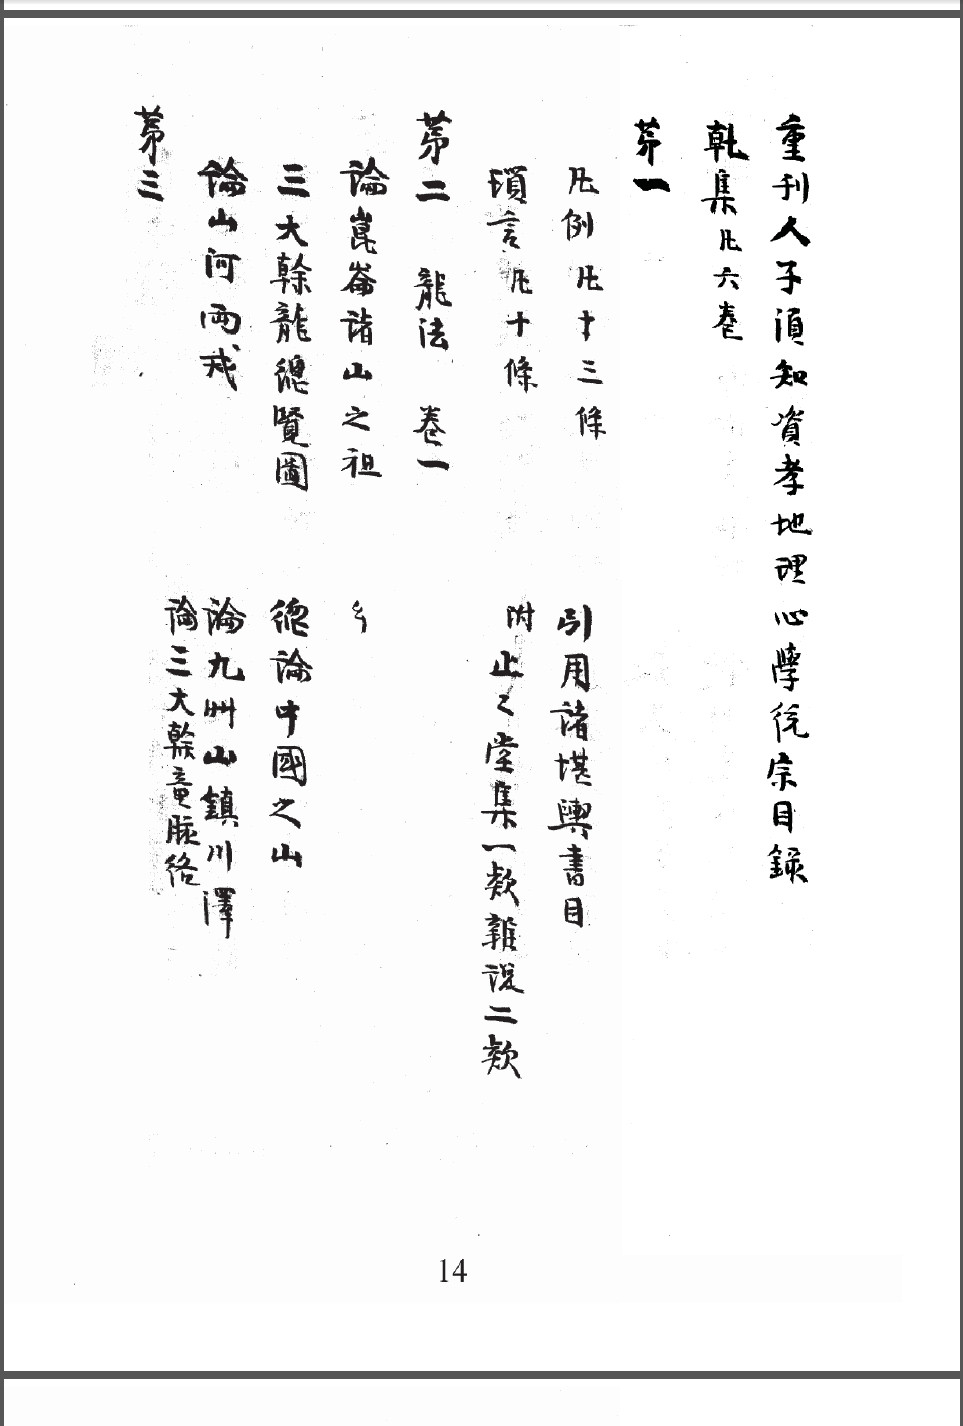 重刊人子須知資孝地理心學統宗目錄
乾集凡六卷
苐一
凡例凡十三條 引用諸堪輿書目
瑣言凡十條 附止〻堂集一欵雜説二欵
苐二 龍法 卷一
論崑崙諸山之祖
三大幹龍總覽圖 總論中國之山
論山河兩戒 論九州山鎮川澤
論三大幹竜脉络
苐三
14